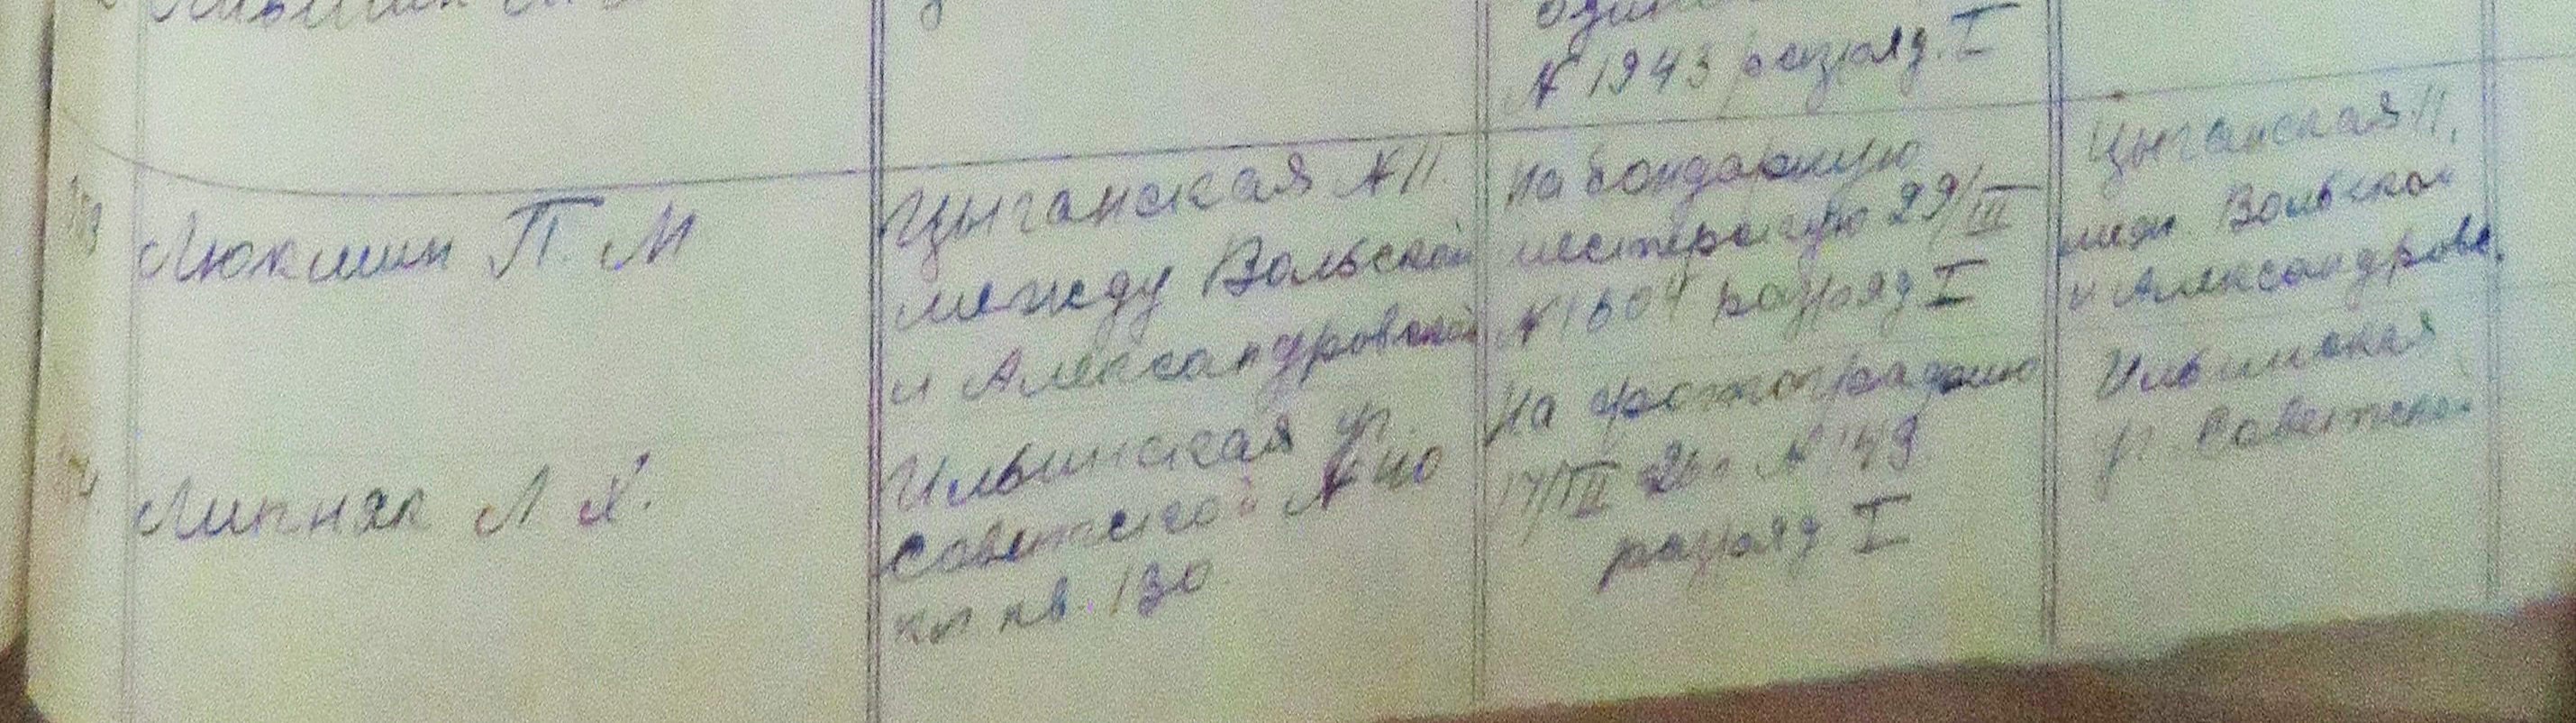 N 1943 разряд. I
Люкшин П. М
Цыганская N 11.
между Вольской
и Александровской
На бондарную
мастерскую 29/III
N 1604 разряд I
Цыганская 11.
меж. Вольской
и Александровс.
Липняк Л. Х.
Ильинская уг.
Советской N 110
кв. 130
На фотографию
17/III 26 г N 149
разряд I
Ильинская
уг. Советской